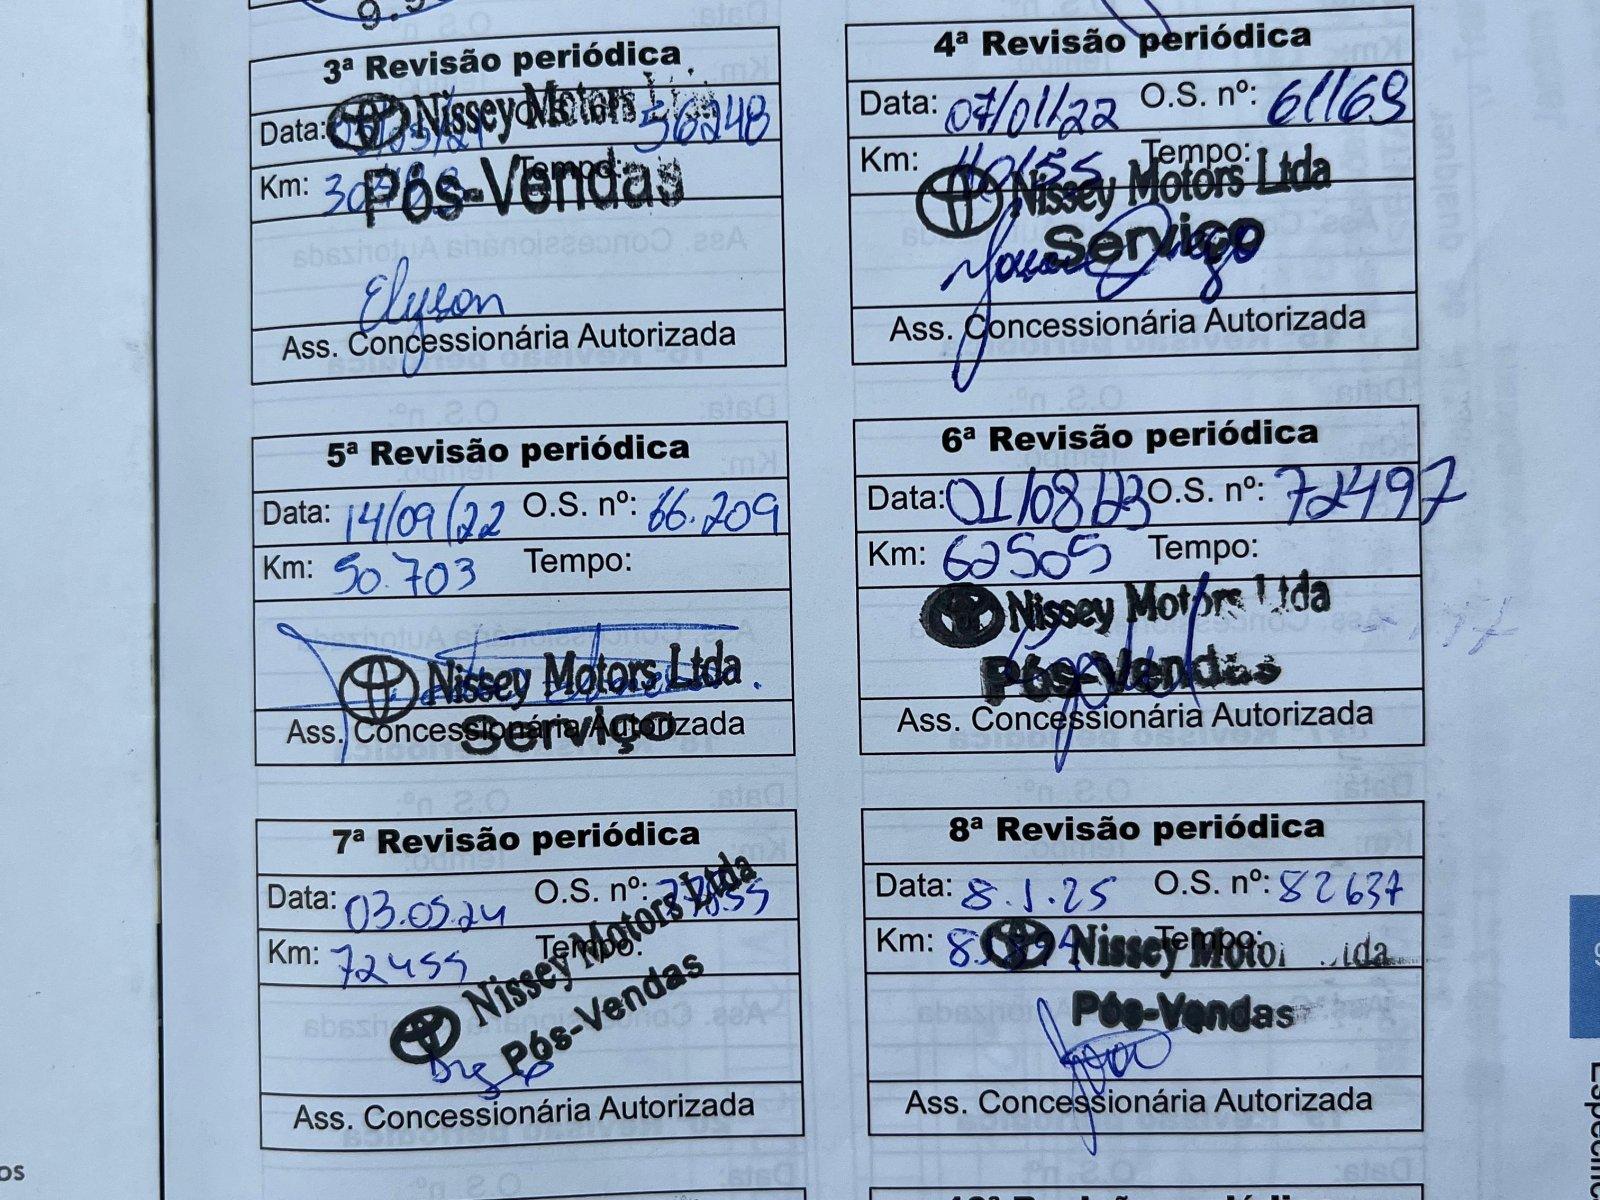 9.9
3ª Revisão periódica
Data: 56248
Nissey Motors Ltda
Km: Tempo:
Pós-Vendas
Elyson
Ass. Concessionária Autorizada
4ª Revisão periódica
Data: 07/01/22 O.S. nº: 61169
Km: 40155 Tempo:
Nissey Motors Ltda
Serviço
Ass. Concessionária Autorizada
5ª Revisão periódica
Data: 14/09/22 O.S. nº: 66.209
Km: 50.703 Tempo:
Nissey Motors Ltda
Serviço
Ass. Concessionária Autorizada
6ª Revisão periódica
Data: 01/08/23 O.S. nº: 72497
Km: 62505 Tempo:
Nissey Motors Ltda
Pós-Vendas
Ass. Concessionária Autorizada
7ª Revisão periódica
Data: 03.05.24 O.S. nº:
Km: 72455 Tempo:
Nissey Motors Ltda
Pós-Vendas
Ass. Concessionária Autorizada
8ª Revisão periódica
Data: 8.1.25 O.S. nº: 82637
Km: Tempo:
Nissey Motor Ltda
Pós-Vendas
Ass. Concessionária Autorizada
os